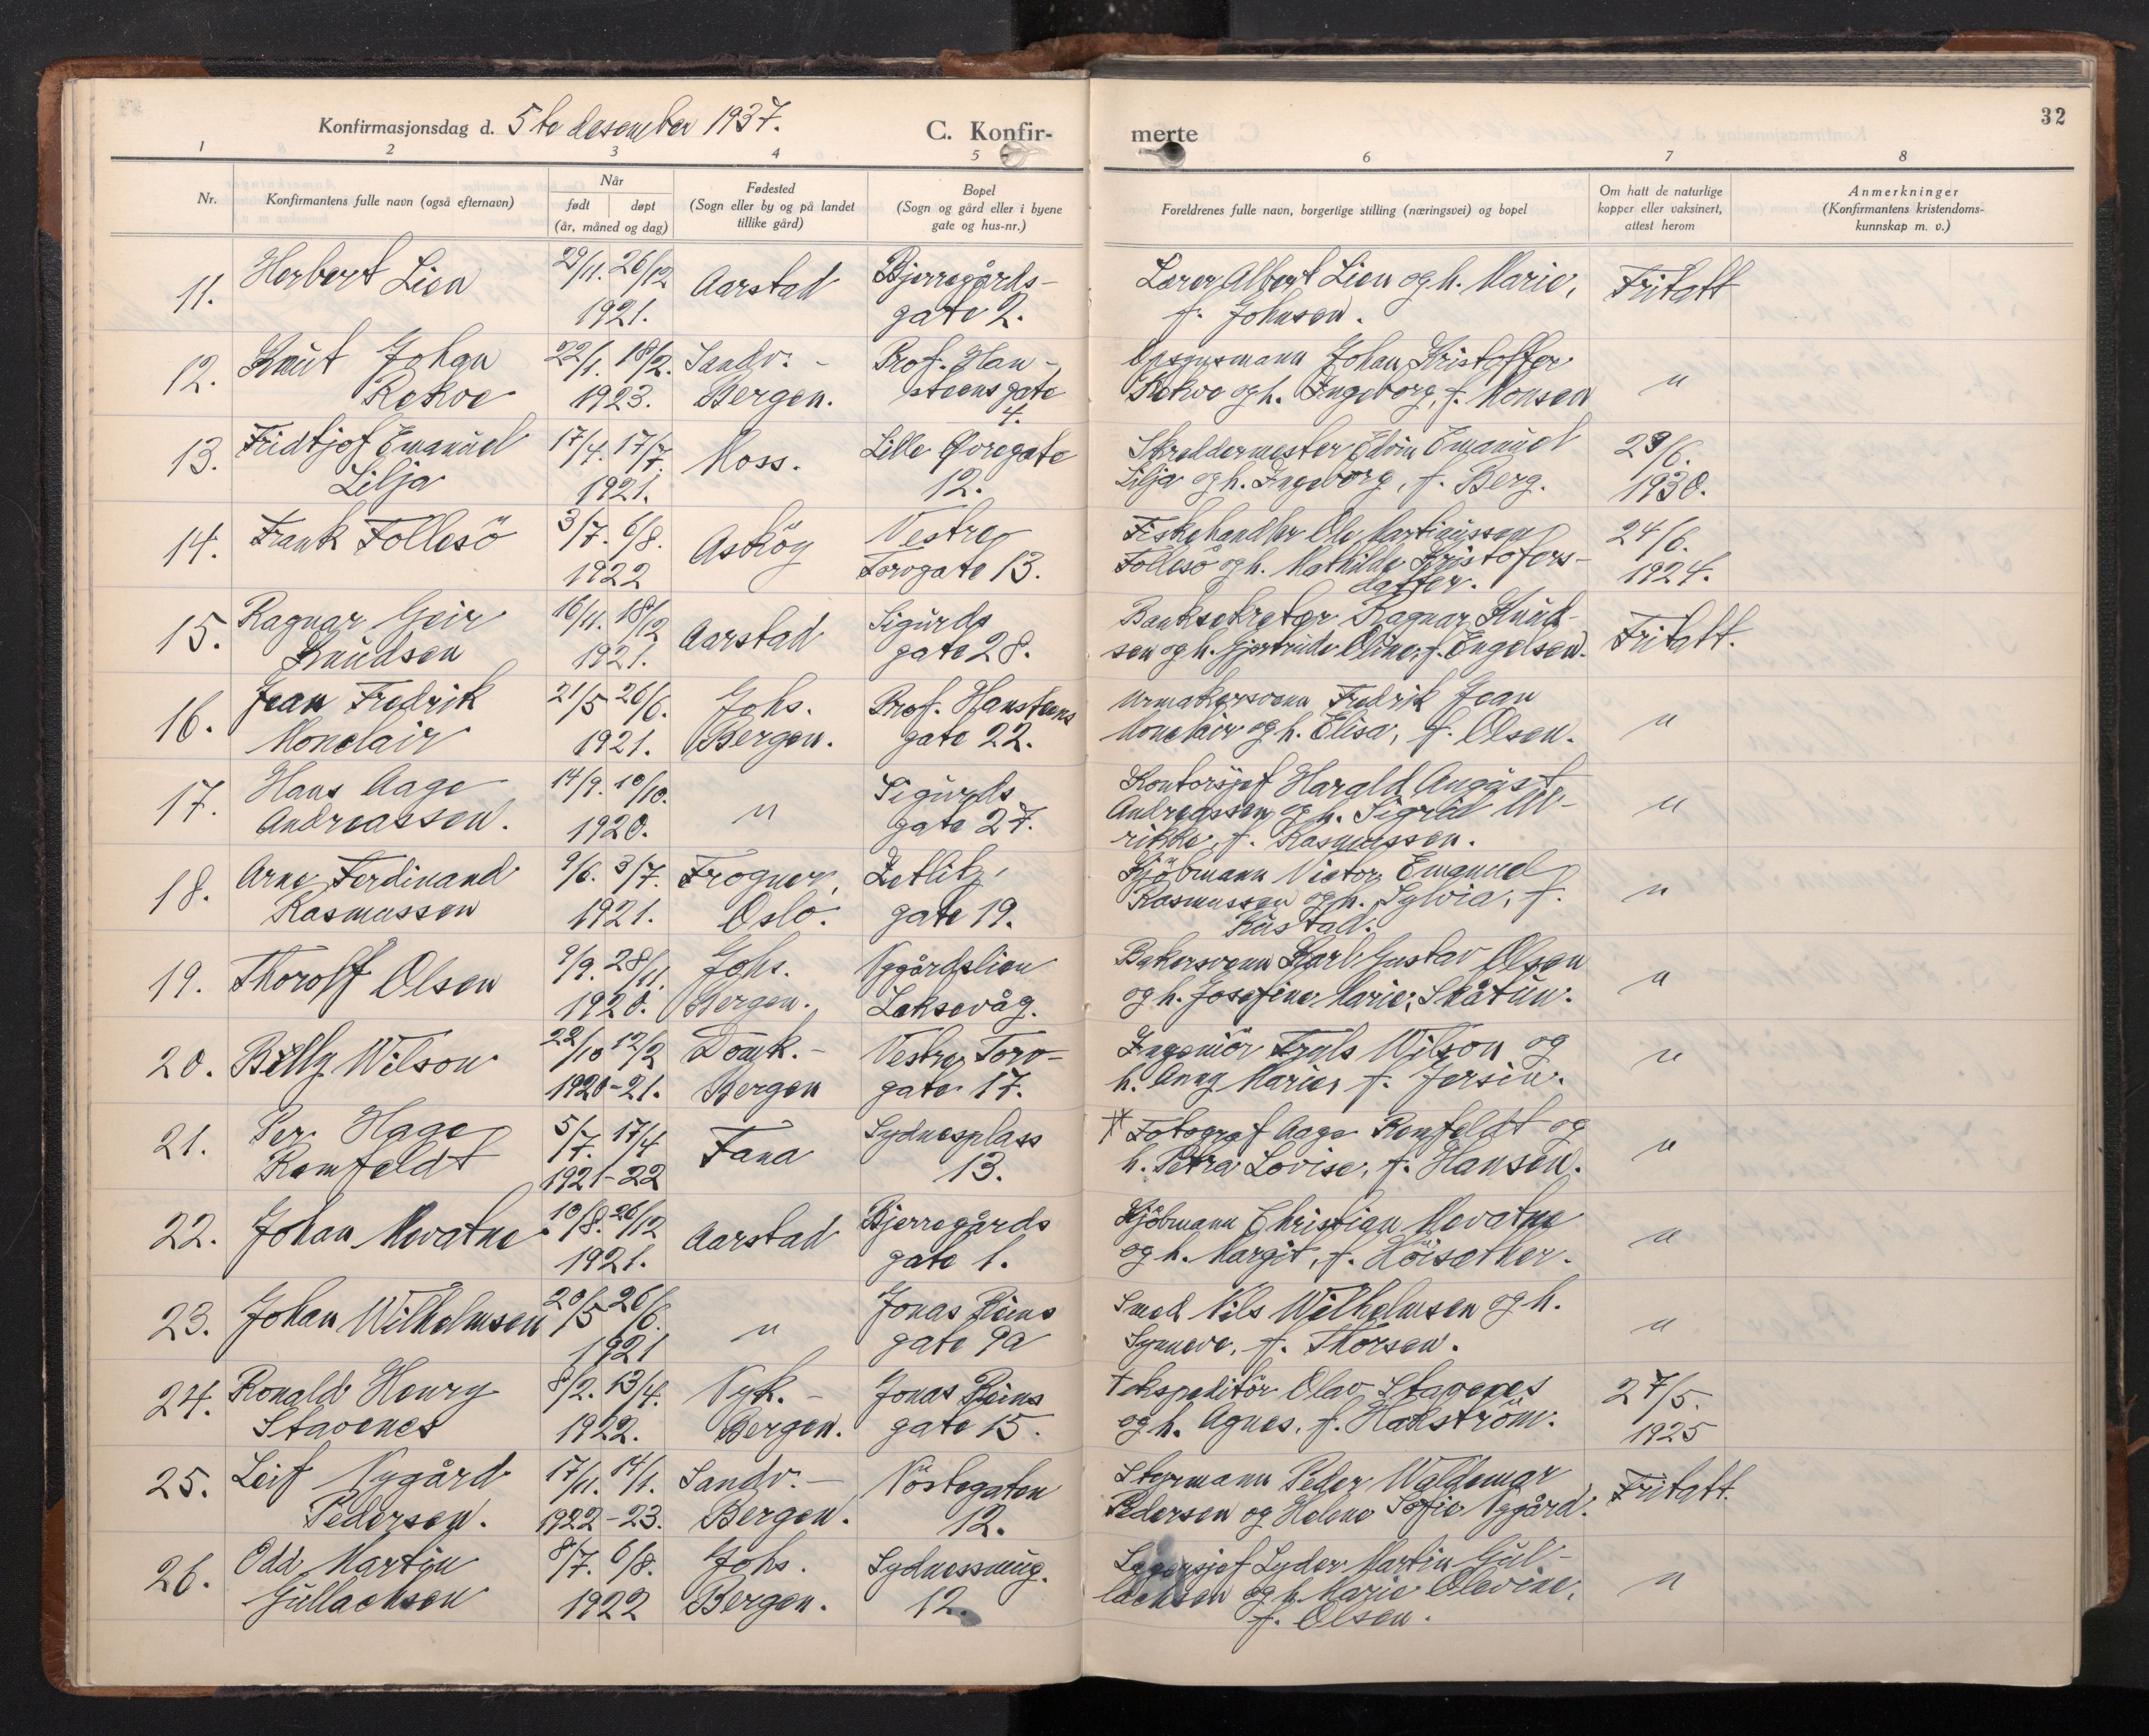 32
Konfirmasjonsdag d. 5te desember 1937.
C. Konfir-
merte
1 2 3 4 5
6 7 8
Nr.
Konfirmantens fulle navn (også efternavn)
Når
født døpt
(år, måned og dag)
Fødested
(Sogn eller by og på landet
tillike gård)
Bopel
(Sogn og gård eller i byene
gate og hus-nr.)
Foreldrenes fulle navn, borgerlige stilling (næringsvei) og bopel
Om hatt de naturlige
kopper eller vaksinert,
attest herom
Anmerkninger
(Konfirmantens kristendoms-
kunnskap m. v.)
11. Herbert Lien 29/11. 26/12 1921. Aarstad Bjerregårds-
gate 2.
Lærer Albert Lien og h. Marie, Fritatt
f. Johnsen.
12. Knut Johan 22/1. 18/2. Sandv. - Prof. Han-
Rekve 1923. Bergen. steens gate
4.
Opsynsmann Johan Kristoffer
Rekve og h. Ingeborg, f. Monsen "
13. Fridtjof Emanuel 17/4. 17/7. Moss. Lille Øvregate
Lilja 1921. 12.
Skreddermester Edvin Emanuel 29/6.
Lilja og h. Ingeborg, f. Berg. 1930.
14. Frank Follesö 3/7. 6/8. Asköy Vestre
1922 Torvgate 13.
Fiskehandler Ole Martinussen 24/6.
Follesö og h. Mathilde Kristofers- 1924.
datter.
15. Ragnar Geir 16/11. 18/12 Aarstad Sigurds
Knudsen 1921. gate 28.
Banksekretær Ragnar Knud-
sen og h. Gjertrude Oline, f. Engelsen. Fritatt.
16. Jean Fredrik 21/5 26/6. Johs. Prof. Hansteens
Monclair 1921. Bergen. gate 22.
Urmakersvenn Fredrik Jean
Monclair og h. Elisa, f. Olsen. "
17. Hans Aage 14/9. 10/10. " Sigurds
Andreassen. 1920. gate 27.
Kontorsjef Harald August
Andreassen og h. Sigrid Ul- "
rikke, f. Rasmussen.
18. Arne Ferdinand 9/6. 3/7. Frogner, Zetlitz,
Rasmussen 1921. Oslo. gate 19.
Kjöbmann Victor Emanuel
Rasmussen og h. Sylvia, f. "
Rustad.
19. Thorolf Olsen 9/9. 28/11. Johs. Nygårdslien
1920. Bergen. Laksevåg.
Bakersvenn Karl Gustav Olsen
og h. Josefine Marie, Skåtun. "
20. Billy Wilson 22/10 12/2 Domk. - Vestre Torv-
1920-21. Bergen gate 17.
Ingeniör Wilson og "
h. Anny Marie, f. Jersin.
21. Per Hage 5/7. 17/4 Fana Sydnesplass
Remfeldt 1921-22 13.
Fotograf Aage Remfeldt og "
h. Petra Lovise, f. Hansen.
22. Johan Mevatne 10/8. 26/12 Aarstad Bjerregårds
1921. gate 1.
Kjöbmann Christian Mevatne
og h. Margit, f. Höisæther. "
23. Johan Wilhelmsen 20/5 26/6. " Jonas Reins
1921 gate 9a
Smed Nils Wilhelmsen og h.
Synneve, f. Thorsen. "
24. Ronald Henry 8/2. 13/4. Nyk. - Jonas Reins
Stavenes 1922. Bergen. gate 15.
Ekspeditör Olav Stavenes 27/5.
og h. Agnes, f. Hakström. 1925
25. Leif Nygård 17/11. 14/1. Sandv. - Nöstegaten
Pedersen. 1922-23. Bergen. 12.
Styrmann Peder Waldemar Fritatt.
Pedersen og Helene Sofie Nygård.
26. Odd Martin 8/7. 6/8. Johs. Sydnessmug.
Gullachsen 1922 Bergen. 12.
Lagersjef Lyder Martin Gul-
lachsen og h. Marie Olevine, "
f. Olsen.